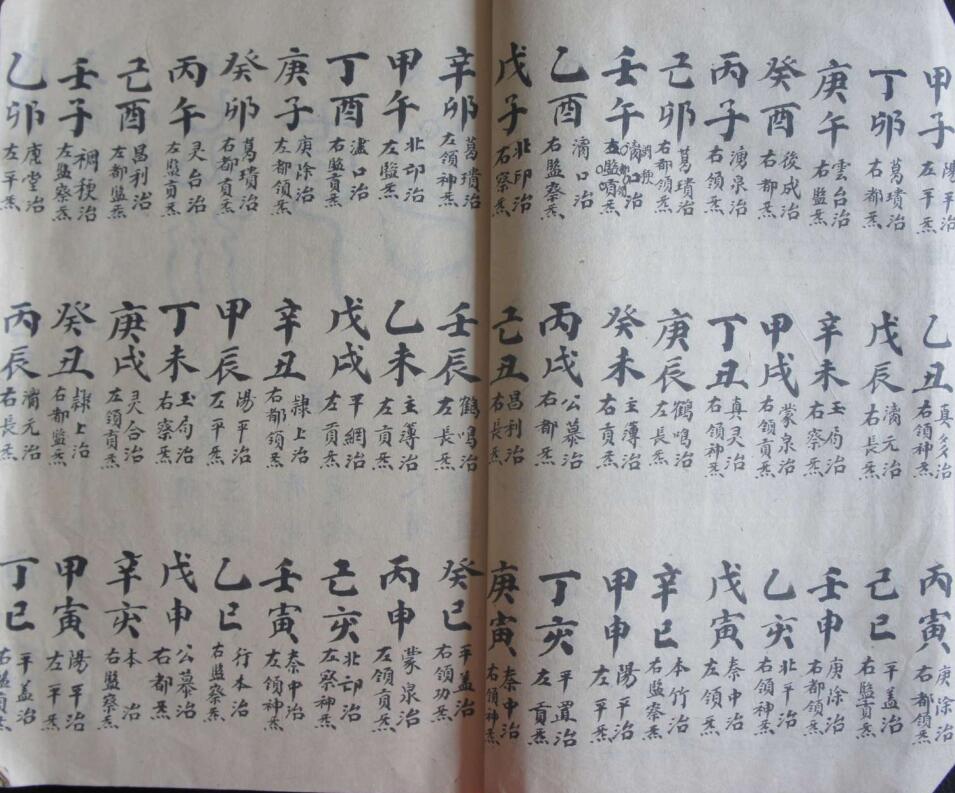 甲子
陽平治
左平炁
乙丑
真多治
右領神炁
丙寅
庚除治
右都領炁
丁卯
葛璝治
右都炁
戊辰
元治
右長炁
己巳
平蓋治
右監貢炁
庚午
雲台治
右監炁
辛未
玉局治
右察炁
壬申
庚除治
右都領炁
癸酉
後成治
右都炁
甲戌
蒙泉治
右領貢炁
乙亥
北平治
右領神炁
丙子
湧泉治
右領炁
丁丑
真灵治
右領神炁
戊寅
秦中治
左領炁
己卯
葛璝治
右都貢炁
庚辰
鶴鳴治
左長炁
辛巳
本竹治
右監察炁
壬午
癸未
主簿治
右貢炁
甲申
陽平治
左平炁
乙酉
口治
右監察炁
丙戌
公慕治
右都炁
丁亥
平置治
左貢炁
戊子
北邙治
右察炁
己丑
昌利治
右長炁
庚寅
秦中治
右領神炁
辛卯
葛璝治
左領神炁
壬辰
鶴鳴治
左長炁
癸巳
平盖治
右領功炁
甲午
北邙治
左監炁
乙未
主簿治
左貢炁
丙申
蒙泉治
左領貢炁
丁酉
口治
右監貢炁
戊戌
平網治
左貢炁
己亥
北邙治
左察神炁
庚子
庚除治
左都領炁
辛丑
隸上治
右都領炁
壬寅
秦中治
左領神炁
癸卯
葛璝治
右都貢炁
甲辰
湯平治
左平炁
乙巳
行本治
右監察炁
丙午
灵台治
左監貢炁
丁未
玉局治
右察炁
戊申
公慕治
右都炁
己酉
昌利治
左都監炁
庚戌
灵合治
左領貢炁
辛亥
本治
右監察炁
壬子
稠稉治
左監察炁
癸丑
隸上治
右都監炁
甲寅
湯平治
左平炁
乙卯
堂治
左平炁
丙辰
元治
右長炁
丁巳
平盖治
右監貢炁